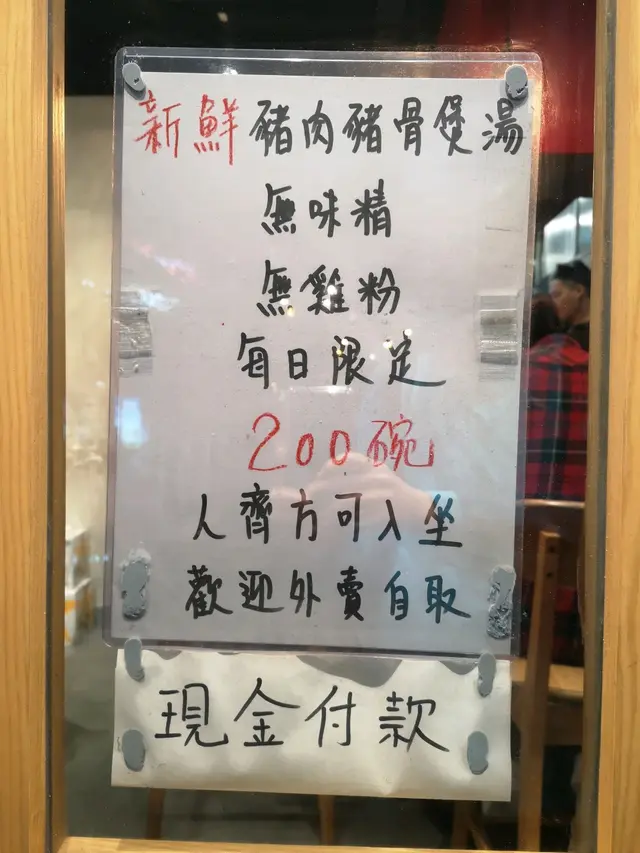 新鮮豬肉豬骨煲湯
無味精
無雞粉
每日限定
200碗
人齊方可入坐
歡迎外賣自取
現金付款